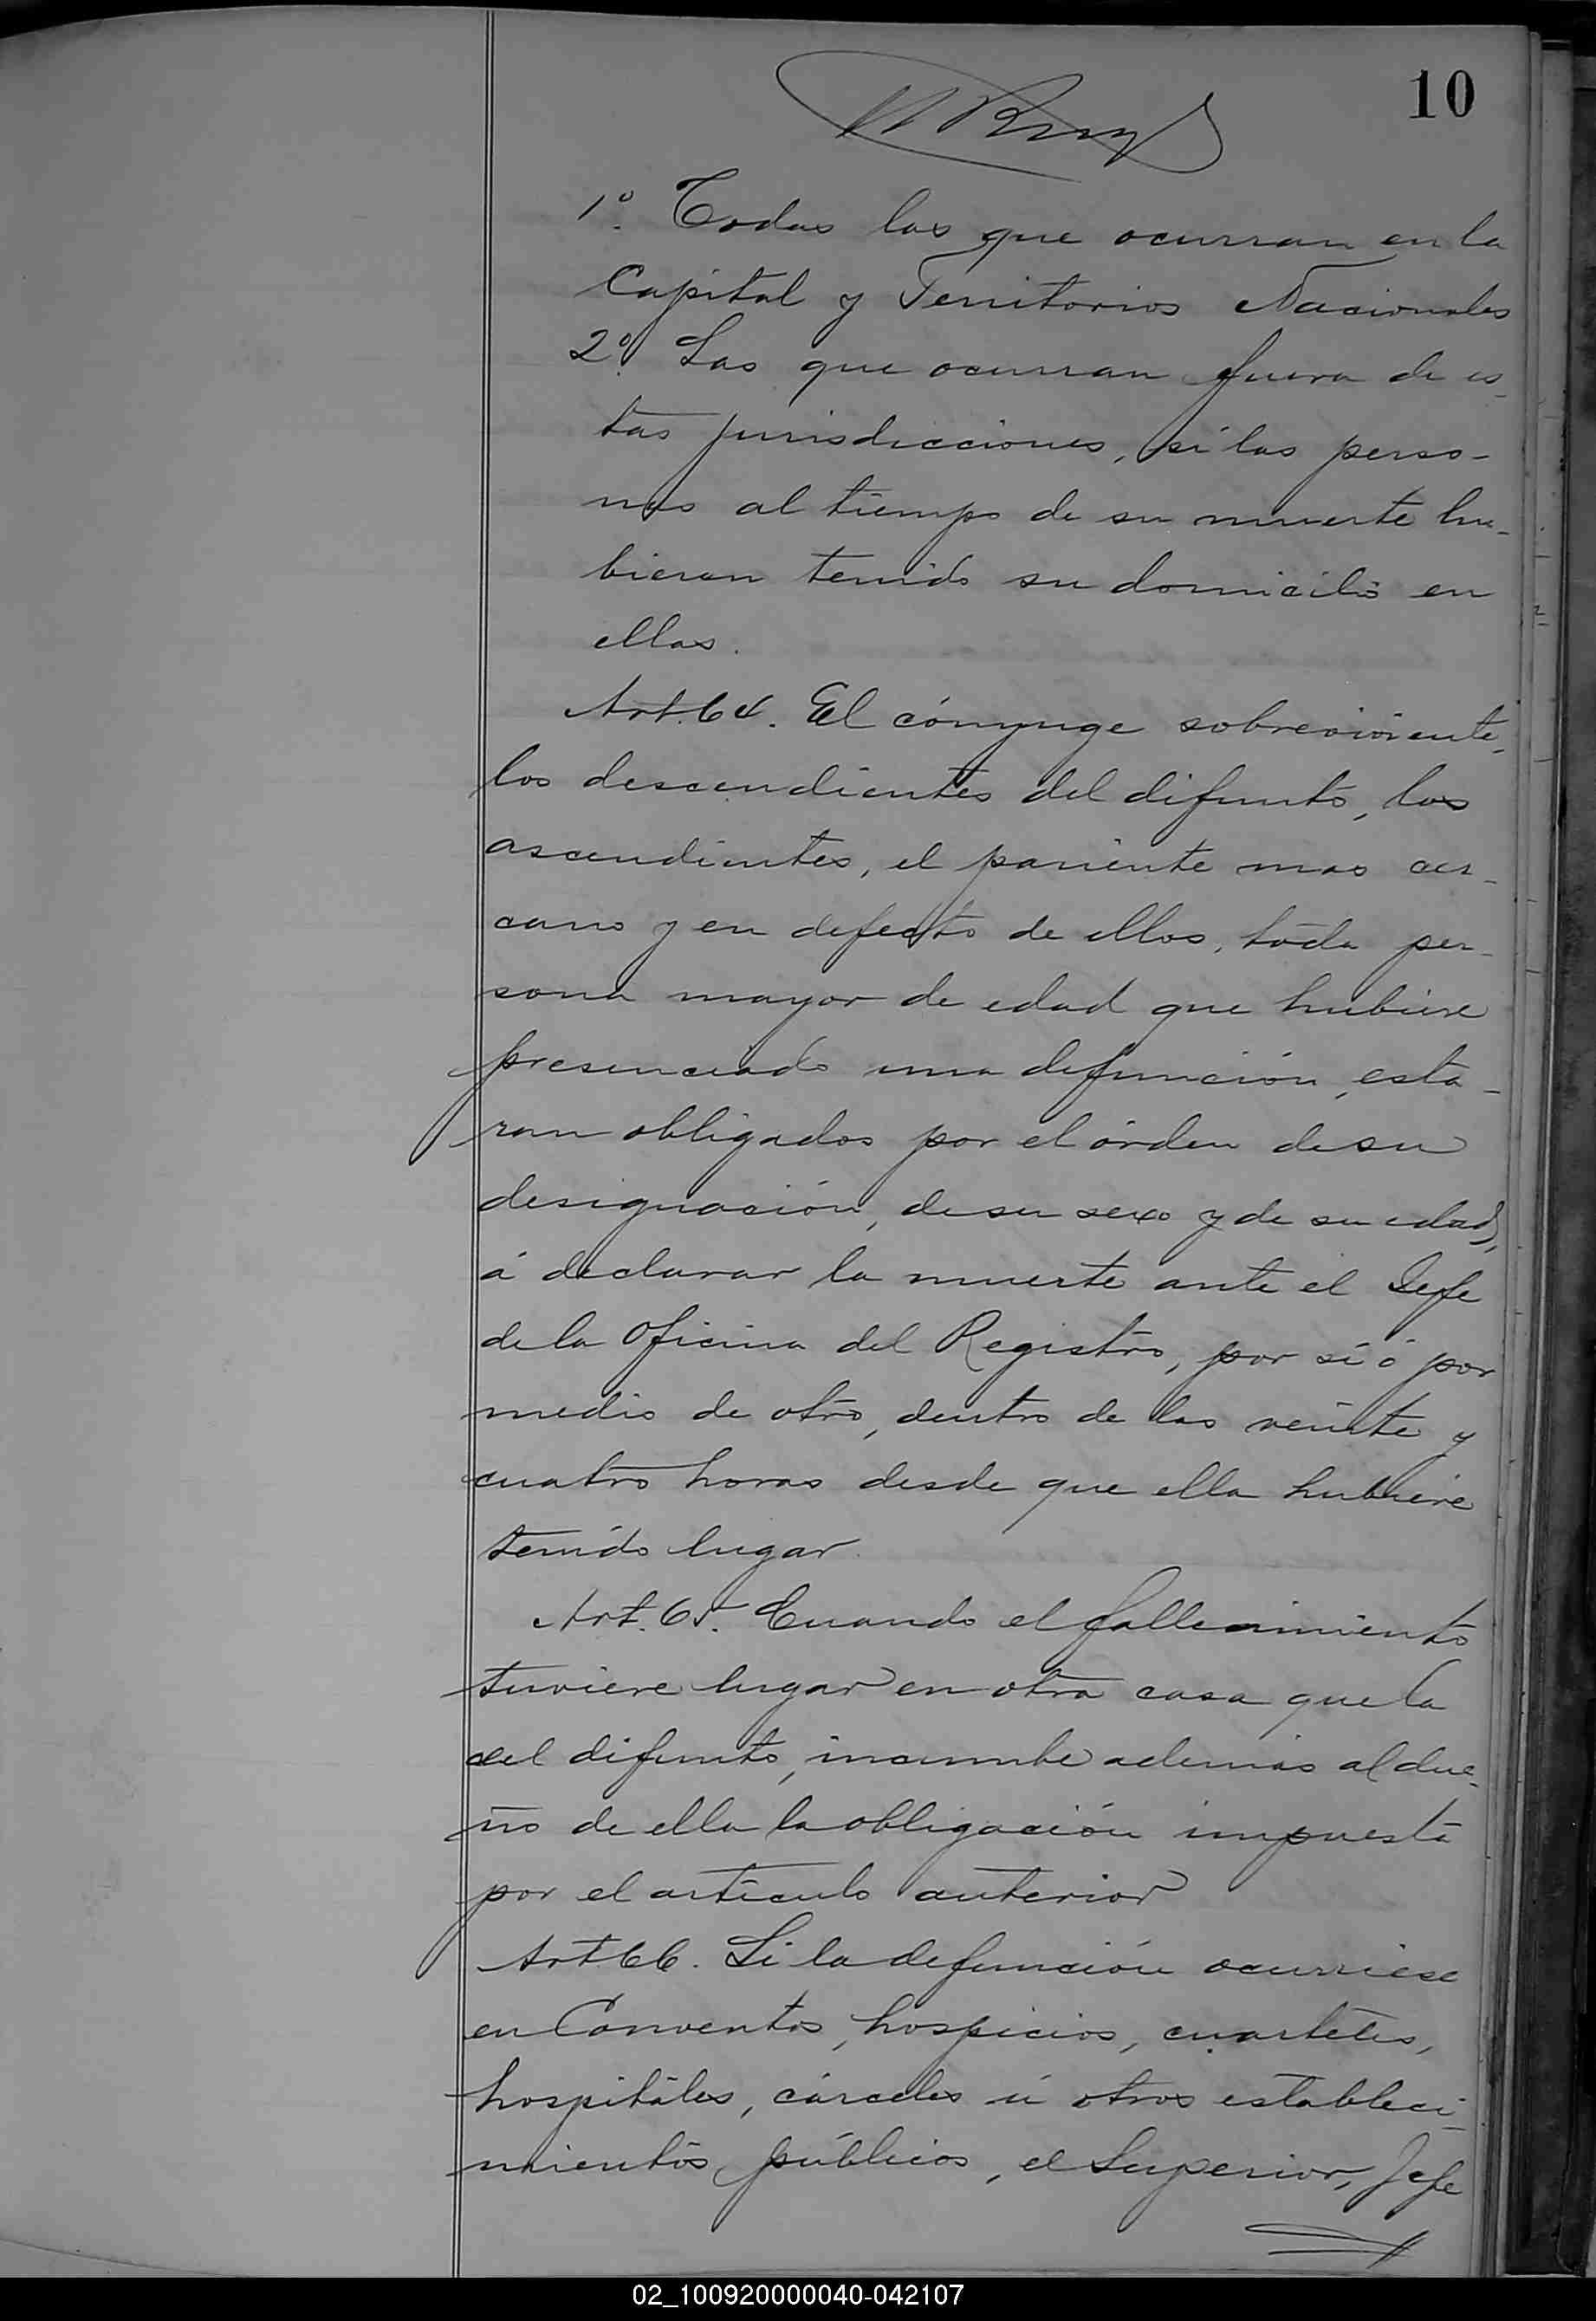 10
1º. Todas las que ocurran en la
Capital y Territorios Nacionales
2º. Las que ocurran fuera de es-
tas jurisdicciones, si las perso-
nas al tiempo de su muerte hu-
bieran tenido su domicilio en
ellas.
Art. 64. El cónyuge sobreviviente,
los descendientes del difunto, los
ascendientes, el pariente mas cer-
cano y en defecto de ellos, toda per-
sona mayor de edad que hubiere
presenciado una defunción, esta-
ran obligados por el órden de su
designación, de su sexo y de su edad,
á declarar la muerte ante el Jefe
de la Oficina del Registro, por sí ó por
medio de otro, dentro de las veinte y
cuatro horas desde que ella hubiere
tenido lugar.
Art. 65. Cuando el fallecimiento
tuviere lugar en otra casa que la
del difunto, incumbe además al due-
ño de ella la obligación impuesta
por el artículo anterior
Art 66. Si la defunción ocurriese
en Conventos, hospicios, cuarteles,
hospitales, cárceles ú otros estableci-
mientos públicos, el Superior, Jefe
02_100920000040-042107